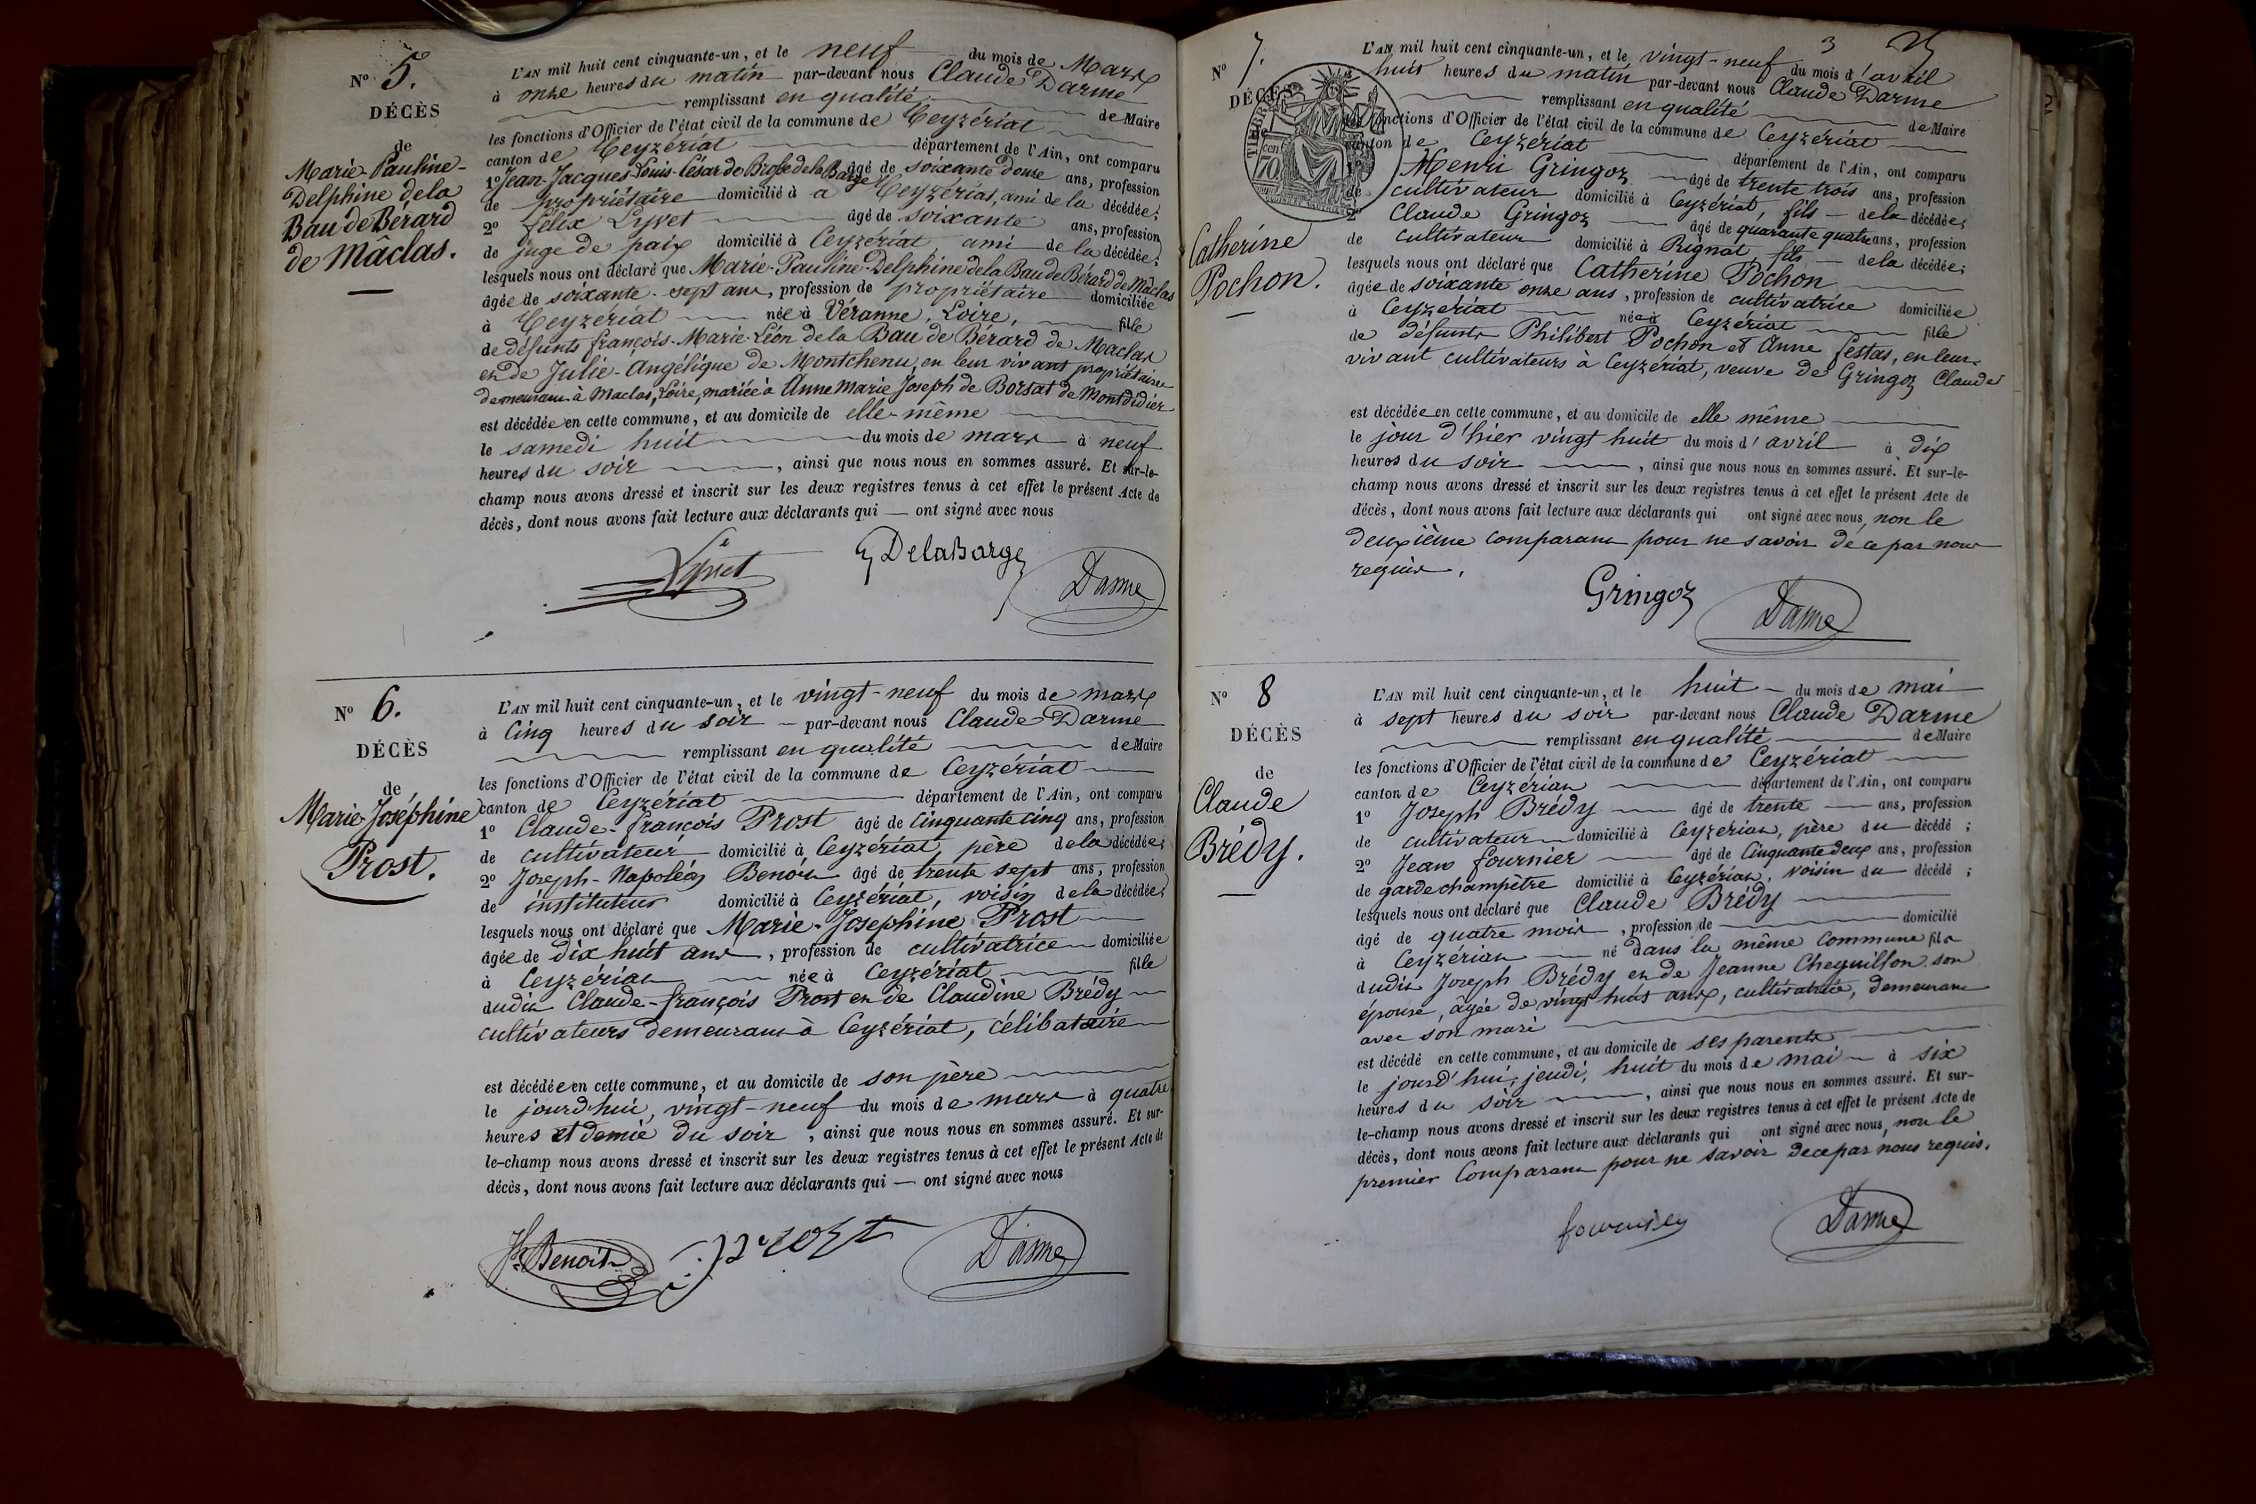 Nº 5.
DÉCÈS
de
Marie-Pauline-
Delphine de la
Bau de Bérard
de Mâclas.
L'AN mil huit cent cinquante-un, et le neuf du mois de Mars
à onze heures du matin par-devant nous Claude Darme
remplissant en qualité de Maire
les fonctions d'Officier de l'état civil de la commune de Ceyzériat
canton de Ceyzériat département de l'Ain, ont comparu
1º Jean-Jacques-Louis-César de Brosse de la Barge âgé de soixante douze ans, profession
de propriétaire domicilié à a Ceyzériat, ami de la décédée;
2º Félix Lyvet âgé de soixante ans, profession
de juge de paix domicilié à Ceyzériat, ami de la décédée;
lesquels nous ont déclaré que Marie-Pauline-Delphine de la Bau de Bérard de Maclas
âgée de soixante-sept ans, profession de propriétaire domiciliée
à Ceyzériat née à Véranne, Loire, fille
de défunts françois-Marie-Léon de la Bau de Bérard de Maclas
et de Julie-Angélique de Montchenu, en leur vivant propriétaires
demeurant à Maclas, Loire, mariée à Anne Marie Joseph de Borsat de Montdidier
est décédée en cette commune, et au domicile de elle-même
le samedi huit du mois de mars à neuf
heures du soir, ainsi que nous nous en sommes assuré. Et sur-le-
champ nous avons dressé et inscrit sur les deux registres tenus à cet effet le présent Acte de
décès, dont nous avons fait lecture aux déclarants qui — ont signé avec nous
Lyvet DelaBarge Darme
Nº 6.
DÉCÈS
de
Marie-Joséphine
Prost.
L'AN mil huit cent cinquante-un, et le vingt-neuf du mois de mars
à Cinq heures du soir par-devant nous Claude Darme
remplissant en qualité de Maire
les fonctions d'Officier de l'état civil de la commune de Ceyzériat
canton de Ceyzériat département de l'Ain, ont comparu
1º Claude-françois Prost âgé de Cinquante cinq ans, profession
de cultivateur domicilié à Ceyzériat, père de la décédée;
2º Joseph-Napoléon Benoit âgé de trente sept ans, profession
de instituteur domicilié à Ceyzériat, voisin de la décédée;
lesquels nous ont déclaré que Marie-Josephine Prost
âgée de dix huit ans, profession de cultivatrice domiciliée
à Ceyzériat née à Ceyzériat fille
dudit Claude-françois Prost et de Claudine Brédy
cultivateurs demeurant à Ceyzériat, célibataire
est décédée en cette commune, et au domicile de son père
le jourd'hui, vingt-neuf du mois de mars à quatre
heures et demie du soir, ainsi que nous nous en sommes assuré. Et sur-
le-champ nous avons dressé et inscrit sur les deux registres tenus à cet effet le présent Acte de
décès, dont nous avons fait lecture aux déclarants qui — ont signé avec nous
Benoit Prost Darme
3
Nº 7.
DÉCÈS
TIMBRE
70
de
Catherine
Pochon.
L'AN mil huit cent cinquante-un, et le vingt-neuf du mois d'avril
à huit heures du matin par-devant nous Claude Darme
remplissant en qualité de Maire
les fonctions d'Officier de l'état civil de la commune de Ceyzériat
canton de Ceyzériat département de l'Ain, ont comparu
1º Henri Gringoz âgé de trente trois ans, profession
de cultivateur domicilié à Ceyzériat, fils de la décédée;
2º Claude Gringoz âgé de quarante quatre ans, profession
de cultivateur domicilié à Rignat, fils de la décédée;
lesquels nous ont déclaré que Catherine Pochon
âgée de soixante onze ans, profession de cultivatrice domiciliée
à Ceyzériat née à Ceyzériat fille
de défunts Philibert Pochon et Anne Festas, en leur
vivant cultivateurs à Ceyzériat, veuve de Gringoz Claude
est décédée en cette commune, et au domicile de elle même
le jour d'hier vingt huit du mois d'avril à dix
heures du soir, ainsi que nous nous en sommes assuré. Et sur-le-
champ nous avons dressé et inscrit sur les deux registres tenus à cet effet le présent Acte de
décès, dont nous avons fait lecture aux déclarants qui ont signé avec nous, non le
deuxième comparant pour ne savoir de ce par nous
requis.
Gringoz Darme
Nº 8
DÉCÈS
de
Claude
Brédy.
L'AN mil huit cent cinquante-un, et le huit du mois de mai
à sept heures du soir par-devant nous Claude Darme
remplissant en qualité de Maire
les fonctions d'Officier de l'état civil de la commune de Ceyzériat
canton de Ceyzériat département de l'Ain, ont comparu
1º Joseph Brédy âgé de trente ans, profession
de cultivateur domicilié à Ceyzériat, père du décédé;
2º Jean fournier âgé de Cinquante deux ans, profession
de garde champêtre domicilié à Ceyzériat, voisin du décédé;
lesquels nous ont déclaré que Claude Brédy
âgé de quatre mois, profession de domicilié
à Ceyzériat né dans la même commune fils
dudit Joseph Brédy et de Jeanne Cheguillon son
épouse, âgée de vingt huit ans, cultivatrice, demeurant
avec son mari
est décédé en cette commune, et au domicile de ses parents
le jourd'hui, jeudi, huit du mois de mai à six
heures du soir, ainsi que nous nous en sommes assuré. Et sur-
le-champ nous avons dressé et inscrit sur les deux registres tenus à cet effet le présent Acte de
décès, dont nous avons fait lecture aux déclarants qui ont signé avec nous, non le
premier Comparant pour ne savoir de ce par nous requis.
fournier Darme